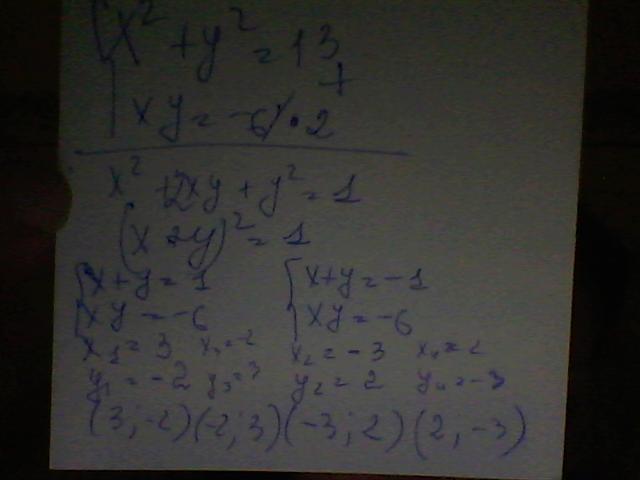 {x² + y² = 13
+
{xy = -6 | · 2
x² + 2xy + y² = 1
(x + y)² = 1
{x + y = 1 {x + y = -1
{xy = -6 {xy = -6
x₁ = 3 x₃ = -2 x₂ = -3 x₄ = 2
y₁ = -2 y₃ = 3 y₂ = 2 y₄ = -3
(3; -2) (-2; 3) (-3; 2) (2; -3)